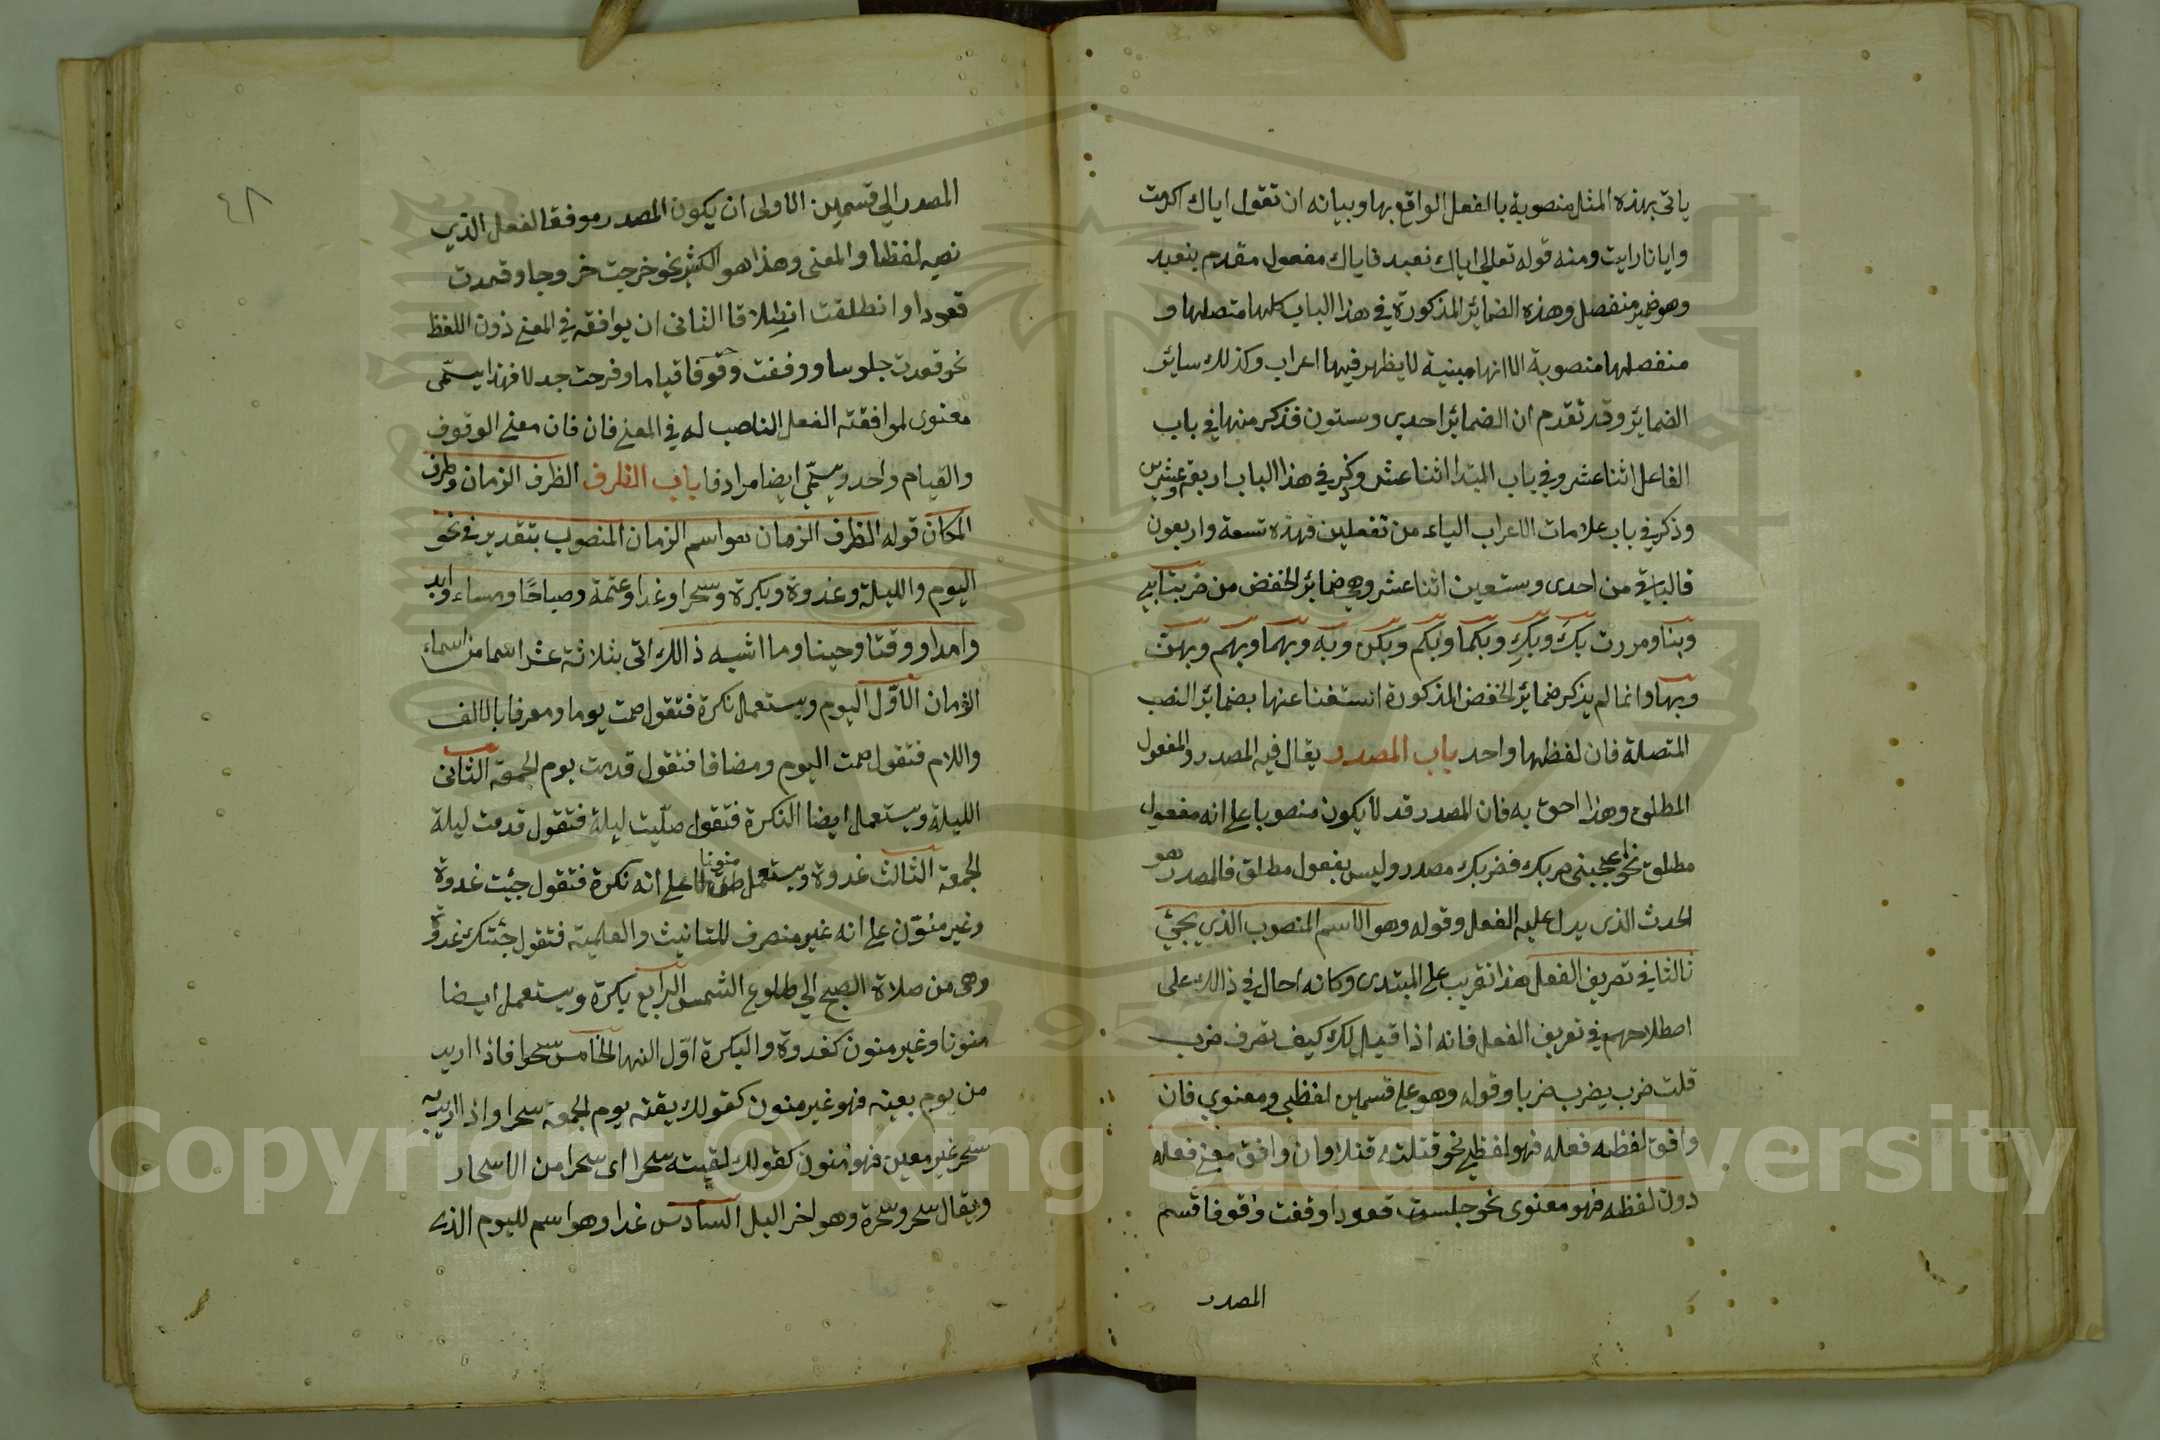 ياتى بهذه المثل منصوبة بالفعل الواقع بها وبيانه ان تقول اياك اكرمت
وايانا رايت ومنه قوله تعالى اياك نعبد فاياك مفعول مقدم بنعبد
وهو ضمير منفصل وهذه الضمائر المذكورة في هذا الباب كلها متصلها و
منفصلها منصوبة الا انها مبنية لا يظهر فيها اعراب وكذلك سائر
الضمائر وقد تقدم ان الضمائر احدى وستون فذكر منها في باب
الفاعل اثنا عشر وفي باب المبتدا اثنا عشر وذكر في هذا الباب اربعة وعشرين
وذكر في باب علامات الاعراب الياء من تفعلين فهذه تسعة واربعون
فالباقي من احدى وستعين اثنا عشر وهي ضمائر الخفض من ضربت ابي
وبنا ومررت بكَ وبكِ وبكما وبكم وبكن وبه وبهما وبهم وبهن
وبها وانما لم يذكر ضمائر الخفض المذكورة استغنا عنها بضمائر النصب
المتصلة فان لفظها واحد باب المصدر يقال فيه المصدر والمفعول
المطلق وهذا احق به فان المصدر قد لا يكون منصوبا على انه مفعول
مطلق نحو اعجبنى ضربك فضربك مصدر وليس بفعول مطلق فالمصدر هو
الحدث الذى يدل عليه الفعل وقوله وهو الاسم المنصوب الذي يجئ
ثالثا في تصريف الفعل هذا تقريب على المبتدى وكانه احال في ذالك على
اصطلاحهم في تعريف الفعل فانه اذا قيل لك كيف تصرف ضرب
قلت ضرب يضرب ضربا وقوله وهو على قسمين لفظي ومعنوي فان
وافق لفظه فعله فهو لفظي نحو قتلته قتلا وان وافق معنى فعله
دون لفظه فهو معنوى نحو جلست قعودا وقفت وقوفا قسم
المصدر
٤٨
المصدر الي قسمين الاولى ان يكون المصدر موفقا لفعل الذي
نصبه لفظا والمعنى وهذا هو الكثير نحو خرجت خروجا وقعدت
قعودا وانطلقت انطلاقا الثانى ان يوافقه في المعنى دون اللفظ
نحو قعدت جلوسا ووقفت وقوفا قياما وفرحت جدلا فهذا يسمّى
معنوى لموافقته الفعل الناصب له في المعنى فان فان معنى الوقوف
والقيام واحد ويسمّى ايضا مرادفا باب الظرف الظرف الزمان وظرف
المكان قوله الظرف الزمان هو اسم الزمان المنصوب بتقدير في نحو
اليوم والليلة وغدوة وبكرة وسحرا وغدا وعتمة وصباحًا ومساء وابد
وامدا ووقتا وحينا وما اشبه ذالك اتى بثلاثة عشر اسما من اسماء
الزمان الاوّل اليوم ويستعمل نكرة فتقول صمت يوما ومعرفا بالالف
واللام فتقول صمت اليوم ومضافا فتقول قدمت يوم الجمعة الثانى
الليلة ويستعمل ايضا النكرة فتقول صلّيت ليلة فتقول قدمت ليلة
الجمعة الثالث غدوة ويستعمل منونا على انه نكرة فتقول جيئت غدوة
وغير منوّن على انه غير منصرف للتانيث والعلمية فتقول جئتك غدوة
وهى من صلاة الصبح الي طلوع الشمس الرابع بكرة ويستعمل ايضا
منونا وغير منون كغدوة والبكرة اوّل النهار الخامس سحرا فاذا اريد
من يوم بعينه فهو غير منون كقولك يقته يوم الجمعة سحر واذا اريد به
سحر غير معين فهو منون كقولك لقيته سحرا اى سحرا من الاسحار
ويقال سحر وسحرة وهو اخر اليل السادس غدا وهو اسم لليوم الذى
Copyright © King Saud University
1957